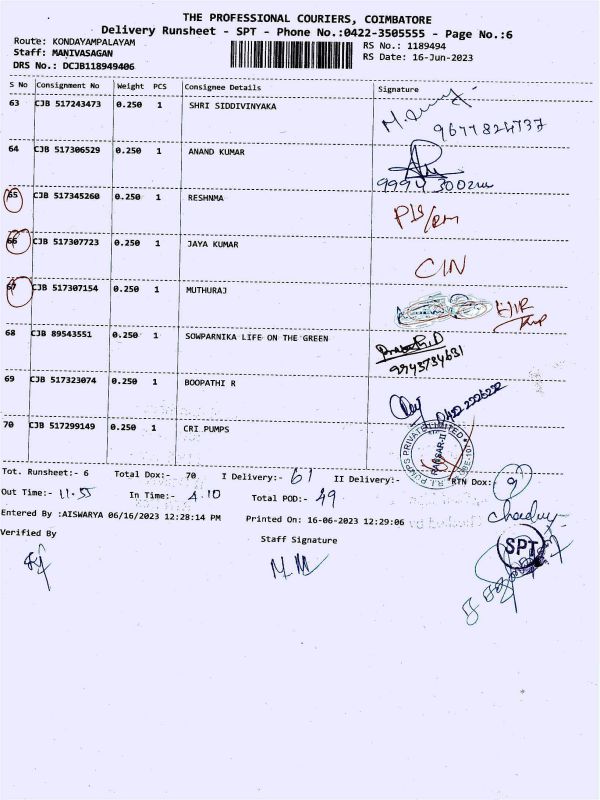 THE PROFESSIONAL COURIERS, COIMBATORE
Delivery Runsheet - SPT - Phone No.:0422-3505555 - Page No.:6
Route: KONDAYAMPALAYAM RS No.: 1189494
Staff: MANIVASAGAN RS Date: 16-Jun-2023
DRS No.: DCJB118949406
S No Consignment No Weight PCS Consignee Details Signature
63 CJB 517243473 0.250 1 SHRI SIDDIVINYAKA
9677824737
64 CJB 517306529 0.250 1 ANAND KUMAR
65 CJB 517345260 0.250 1 RESHNMA
66 CJB 517307723 0.250 1 JAYA KUMAR CIN
67 CJB 517307154 0.250 1 MUTHURAJ
68 CJB 89543551 0.250 1 SOWPARNIKA LIFE ON THE GREEN
9943734631
69 CJB 517323074 0.250 1 BOOPATHI R
70 CJB 517299149 0.250 1 CRI PUMPS
Tot. Runsheet:- 6 Total Dox:- 70 I Delivery:- 61 II Delivery:- RTN Dox:- 9
Out Time:- 11.55 In Time:- 4.10 Total POD:- 49
Entered By :AISWARYA 06/16/2023 12:28:14 PM Printed On: 16-06-2023 12:29:06
Verified By Staff Signature
SPT